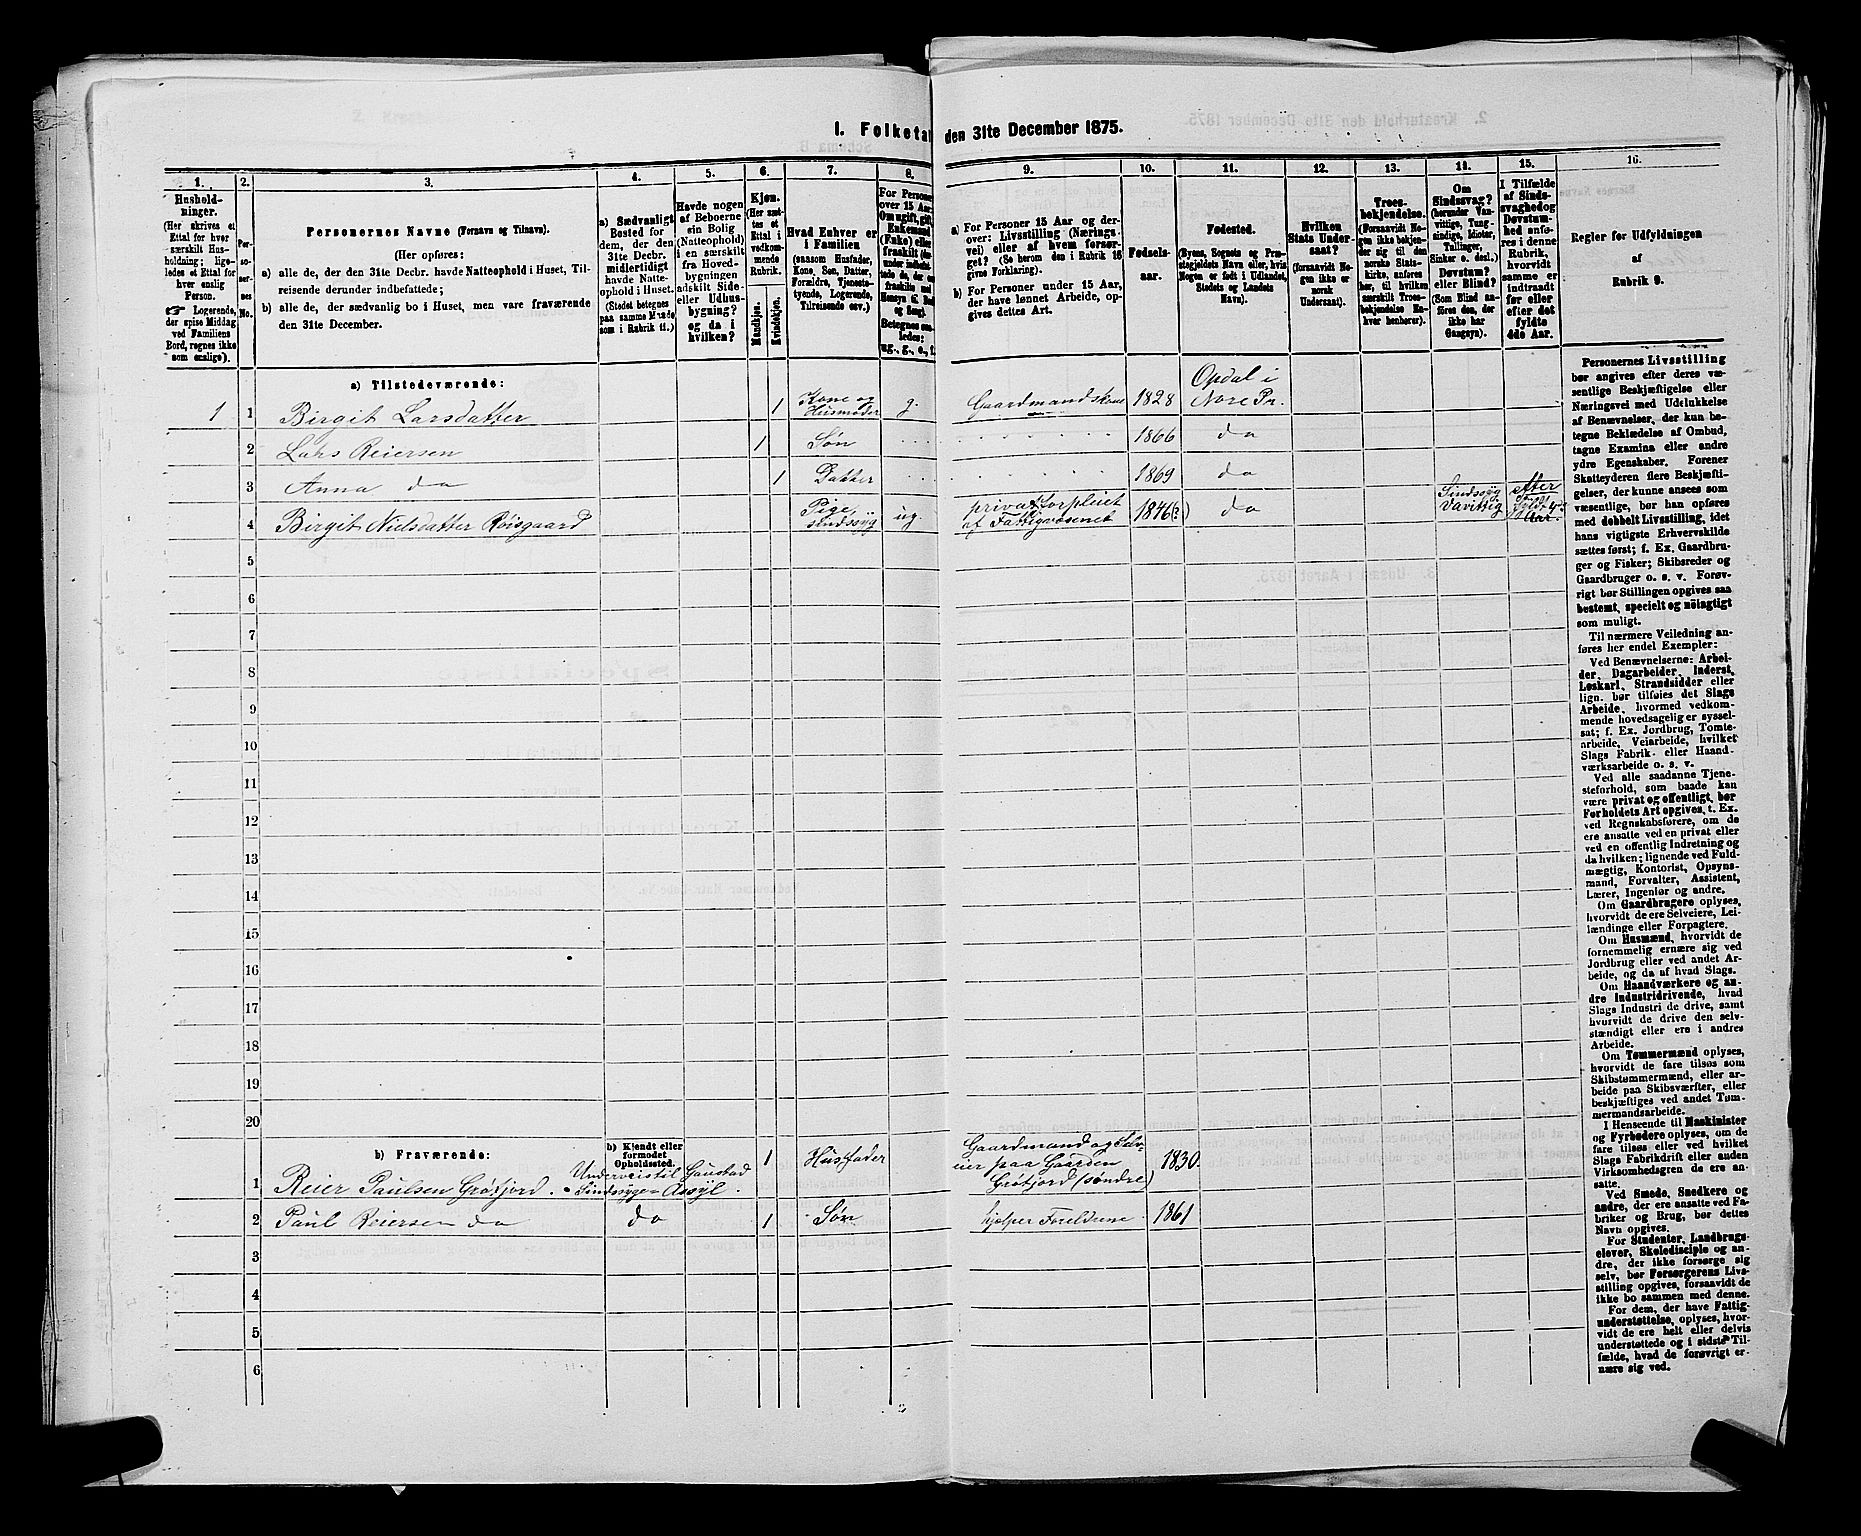 I. Folketal den 31te December 1875.
1. 2. 3. 4. 5. 6. 7. 8. 9. 10. 11. 12. 13. 14. 15. 16.
Hushold-
ninger.
(Her skrives et
Ettal for hver
særskilt Hus-
holdning; lige-
ledes et Ettal for
hver enslig
Person.
☛ Logerende,
der spise Middag
ved Familiens
Bord, regnes ikke
som enslige).
Per-
so-
ner-
nes
No.
Personernes Navne (Fornavn og Tilnavn).
(Her opføres:
a) alle de, der den 31te Decbr. havde Natteophold i Huset, Til-
reisende derunder indbefattede;
b) alle de, der sædvanlig bo i Huset, men vare fraværende
den 31te December.
a) Sædvanligt
Bosted for
dem, der den
31te Decbr.
midlertidigt
havde Natte-
ophold i Huset.
(Stedet betegnes
paa samme Maade
som i Rubrik 11.)
Havde nogen
af Beboerne
sin Bolig
(Natteophold)
i en særskilt
fra Hoved-
bygningen
adskilt Side-
eller Udhus-
bygning?
og da i
hvilken?
Kjøn.
(Her sæt-
tes et
Ettal i
vedkom-
mende
Rubrik.
Mandkjøn.
Kvindekjøn.
Hvad Enhver er
i Familien
(saasom Husfader,
Kone, Søn, Datter,
Forældre, Tjeneste-
tyende, Logerende,
Tilreisende osv.)
For Personer
over 15 Aar:
Om ugift, gift,
Enkemand
(Enke) eller
fraskilt
a) For Personer 15 Aar og der-
over: Livsstilling (Nærings-
vei) eller af hvem forsør-
get? (Se herom den i Rubrik 16
givne Forklaring).
b) For Personer under 15 Aar,
der have lønnet Arbeide, op-
gives dettes Art.
Fødsels-
aar.
Fødested.
(Byens, Sognets og Præ-
stegjeldets Navn eller, hvis
Nogen er født i Udlandet,
Stedets og Landets
Navn).
Hvilken
Stats Under-
saat?
(forsaavidt No-
gen ikke er
norsk
Undersaat).
Troes-
bekjendelse.
(Forsaavidt No-
gen ikke bekjen-
der sig til den
norske Stats-
kirke, anføres
her, til hvilken
særskilt Troes-
bekjendelse En-
hver henhører).
Om
Sindssvag?
(herunder Van-
vittige, Tung-
sindige, Idioter,
Tullinger,
Sinker o. desl.)
Døvstum?
eller Blind?
(Som Blind an-
føres den, der
ikke har
Gangsyn).
I Tilfælde
af Sinds-
svaghed og
Døvstum-
hed anfø-
res i denne
Rubrik,
hvorvidt
samme er
indtraadt
før eller
efter det
fyldte
4de Aar.
Regler for Udfyldningen
af
Rubrik 9.
a) Tilstedeværende:
1 1 Birgit Larsdatter 1 Kone og Husmoder g. Gaardmandskone 1828 Opdal i Nore Pr.
2 Lars Reiersen 1 Søn 1866 do
3 Anna do 1 Datter 1869 do
4 Birgit Nielsdatter Roisgaard Pige sindssyg ug. privat forpleiet af Fattigvæsenet 1846(?) do Sindssyg Vavittig efter fyldt 4de Aar.
5
6
7
8
9
10
11
12
13
14
15
16
17
18
19
20
b) Fraværende:
b) Kjendt eller
formodet
Opholdssted.
1 Reier Paulsen Grøtfjord. Underveis til Gaustad Sindssyge-Assyl. 1 Husfader Gaardmand og Selveier paa Gaarden Grøtjord (søndre) 1830.
2 Paul Reiersen do do 1 Søn hjelper Foreldrene 1861
3
4
5
6
Personernes Livsstilling
bør angives efter deres væ-
sentlige Beskjæftigelse eller
Næringsvei med Udelukkelse
af Benævnelser, der kun be-
tegne Beklædelse af Ombud,
tagne Examina eller andre
ydre Egenskaber. Forener
Skatteyderen flere Beskjæfti-
gelser, der kunne ansees som
væsentlige, bør han opføres
med dobbelt Livsstilling, idet
hans vigtigste Erhvervskilde
sættes først; f. Ex. Gaardbru-
ger og Fisker; Skibsreder og
Gaardbruger o. s. v. Forøv-
rigt bør Stillingen opgives saa
bestemt, specielt og nöiagtigt
som muligt.
Til nærmere Veiledning an-
føres her endel Exempler:
Ved Benævnelserne: Arbei-
der, Dagarbeider, Inderst,
Løskarl, Strandsidder eller
lign. bør tilføies det Slags
Arbeide, hvormed vedkom-
mende hovedsagelig er syssel-
sat; f. Ex. Jordbrug, Tomte-
arbeide, Veiarbeide, hvilket
Slags Fabrik- eller Haand-
værksarbeide o. s. v.
Ved alle saadanne Tjene-
steforhold, som baade kan
være privat og offentligt, bør
Forholdets Art opgives, t. Ex.
ved Regnskabsførere, om de
ere ansatte ved en privat eller
ved en offentlig Indretning og
da hvilken; lignende ved Fuld-
mægtig, Kontorist, Opsyns-
mand, Forvalter, Assistent,
Lærer, Ingeniør og andre.
Om Gaardbrugere oplyses,
hvorvidt de ere Selveiere, Lei-
lændinge eller Forpagtere.
Om Husmænd, hvorvidt de
fornemmelig ernære sig ved
Jordbrug eller ved andet Ar-
beide, og da af hvad Slags.
Om Haandværkere og an-
dre Industridrivende, hvad
Slags Industri de drive, samt
hvorvidt de drive den selv-
stændigt eller ere i andres
Arbeide.
Om Tømmermænd oplyses,
hvorvidt de fare tilsøs som
Skibstømmermænd, eller ar-
beide paa Skibsværfter, eller
beskjæftiges ved andet Tøm-
mermandsarbeide.
I Henseende til Maskinister
og Fyrbødere oplyses, om de
fare tilsøs eller ved hvilket
Slags Fabrikdrift eller anden
Virksomhedsgren de ere an-
satte.
Ved Smede, Snedkere og
andre, der ere ansatte ved Fa-
briker og Brug, bør dettes
Navn opgives.
For Studenter, Landbrugs-
elever, Skoledisciple og an-
dre, der ikke forsørge sig
selv, bør Forsørgerens Livs-
stilling opgives, forsaavidt de
ikke bo sammen med denne.
For dem, der have Fattig-
understøttelse, oplyses, hvor-
vidt de ere helt eller delvis
understøttede og i sidste Til-
fælde, hvad de forøvrigt er-
nære sig ved.